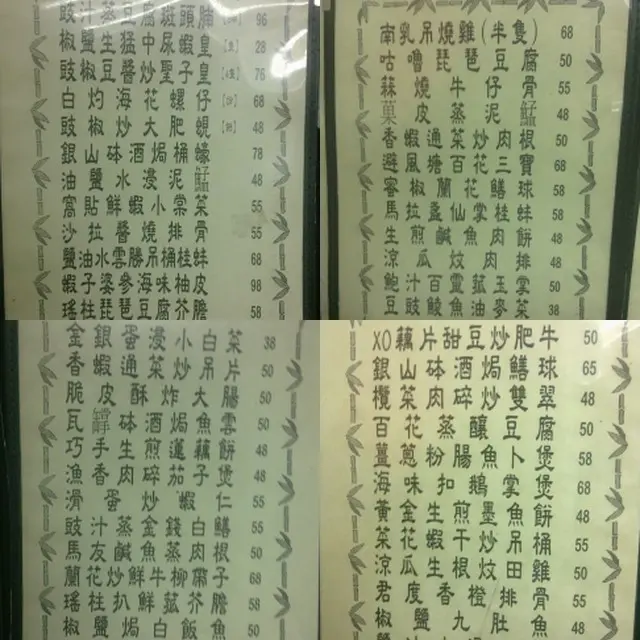 豉汁蒸豆腐斑頭腩 96
椒鹽生猛中尿蝦皇 28
豉椒豆醬炒聖子皇 76
白灼海花螺仔 68
豉椒炒大肥蜆 48
銀山砵酒焗桶蠔 78
油鹽水浸泥鯭 48
窩貼鮮蝦小棠菜 55
沙拉醬燒排骨 55
鹽油水雲勝吊桶桂蚌 68
蝦子婆參海味柚皮 98
瑤柱琵琶豆腐芥膽 58
南乳吊燒雞(半隻) 68
咕嚕琵琶豆腐 50
蒜燒牛仔骨 55
菓皮蒸泥鯭 48
香蝦通菜炒肉根 50
避風塘百花三寶 68
蜜椒蘭花鱔球 58
馬拉盞仙掌桂蚌 58
生煎鹹魚肉餅 48
涼瓜炆肉排 48
鮑汁百靈菰玉棠菜 50
豆豉鯪魚油麥菜 38
金銀蛋浸小白菜 38
香蝦通菜炒吊片 50
脆皮酥炸大腸 50
瓦罉砵酒焗魚雲 48
巧手生煎蓮藕餅 48
漁香肉碎茄子煲 48
滑蛋炒蝦仁 55
豉汁蒸金錢白鱔 55
馬友鹹魚蒸肉根 50
蘭花炒鮮牛柳帶子 68
瑤柱扒鮮菰芥膽 58
椒鹽焗白飯魚 50
XO藕片甜豆炒肥牛 50
銀山砵酒焗鱔球 65
欖菜肉碎炒雙翠 50
百花蒸釀豆腐 50
薑蔥粉腸魚卜煲 48
海味扣鵝掌煲 68
黃金生煎墨魚餅 48
菜花蝦干炒吊桶 55
涼瓜生根炆田雞 50
君度香橙排骨 55
椒鹽九肚魚 48